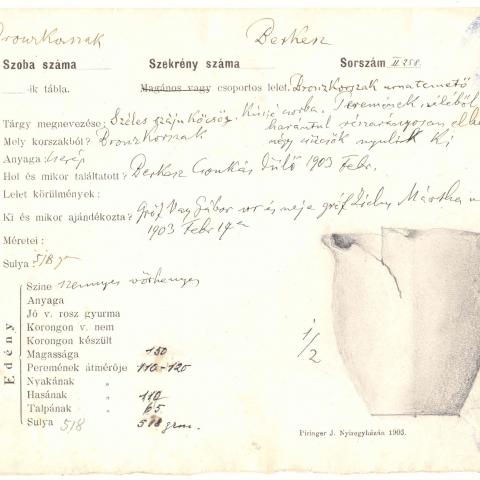 Bronzkorszak Berkesz
Szoba száma Szekrény száma Sorszám II. 258.
-ik tábla. Magános vagy csoportos lelet. Bronzkorszak urnatemető
Tárgy megnevezése: Széles szájú köcsög. Kiöjtő csorba. Peremének széléből
Mely korszakból? Bronzkorszak harántul részarányosan
négy nyulik ki
Anyaga: cserép
Hol és mikor találtatott? Berkesz Csonkás dülő 1903 Febr.
Lelet körülmények:
Ki és mikor ajándékozta? Gróf Vay Gábor ur és neje gróf Zichy Mártha
1903 Febr 19
Méretei:
Sulya: 518 gr
Edény
Szine szennyes vörhenyes
Anyaga
Jó v. rosz gyurma
Korongon v. nem
Korongon készült
Magassága 150
Peremének átmérője 110-120
Nyakának "
Hasának " 110
Talpának " 65
Sulya 518 518 grm.
1/2
Piringer J. Nyiregyházán 1903.